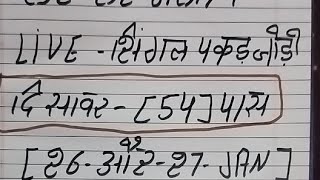 LIVE - सिंगल पकड़ जोड़ी
दिसावर - [54] पास
[26 - और - 27 - JAN]